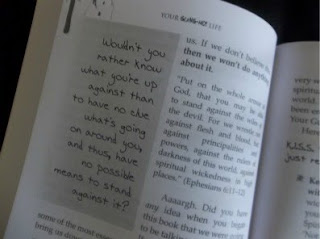 YOUR LIFE
Wouldn't you
rather know
what you're up
against than
to have no clue
what's going
on around you,
and thus, have
no possible
means to stand
against it?
us. If we don't believe
then we won't do anything
about it.
"Put on the whole armor of
God, that you may be able
to stand against the wiles of
the devil. For we wrestle not
against flesh and blood, but
against principalities and
powers, against the rulers of the
darkness of this world, against
spiritual wickedness in high
places." (Ephesians 6:11-12)
Aaaargh. Did you have
any idea when you began
this book that we were going
to be talking
some of the most
bring us down
very
spiritual
world.
been
Your
Here
K.I.S.S.
just re